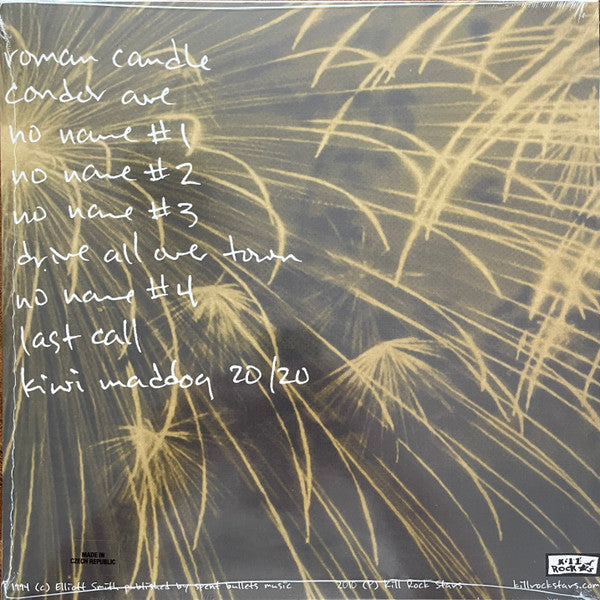 roman candle
condor ave
no name #1
no name #2
no name #3
drive all over town
no name #4
last call
kiwi maddog 20/20
MADE IN
CZECH REPUBLIC
KILL
ROCK
1994 (c) Elliott Smith published by spent bullets music 2010 (P) Kill Rock Stars killrockstars.com